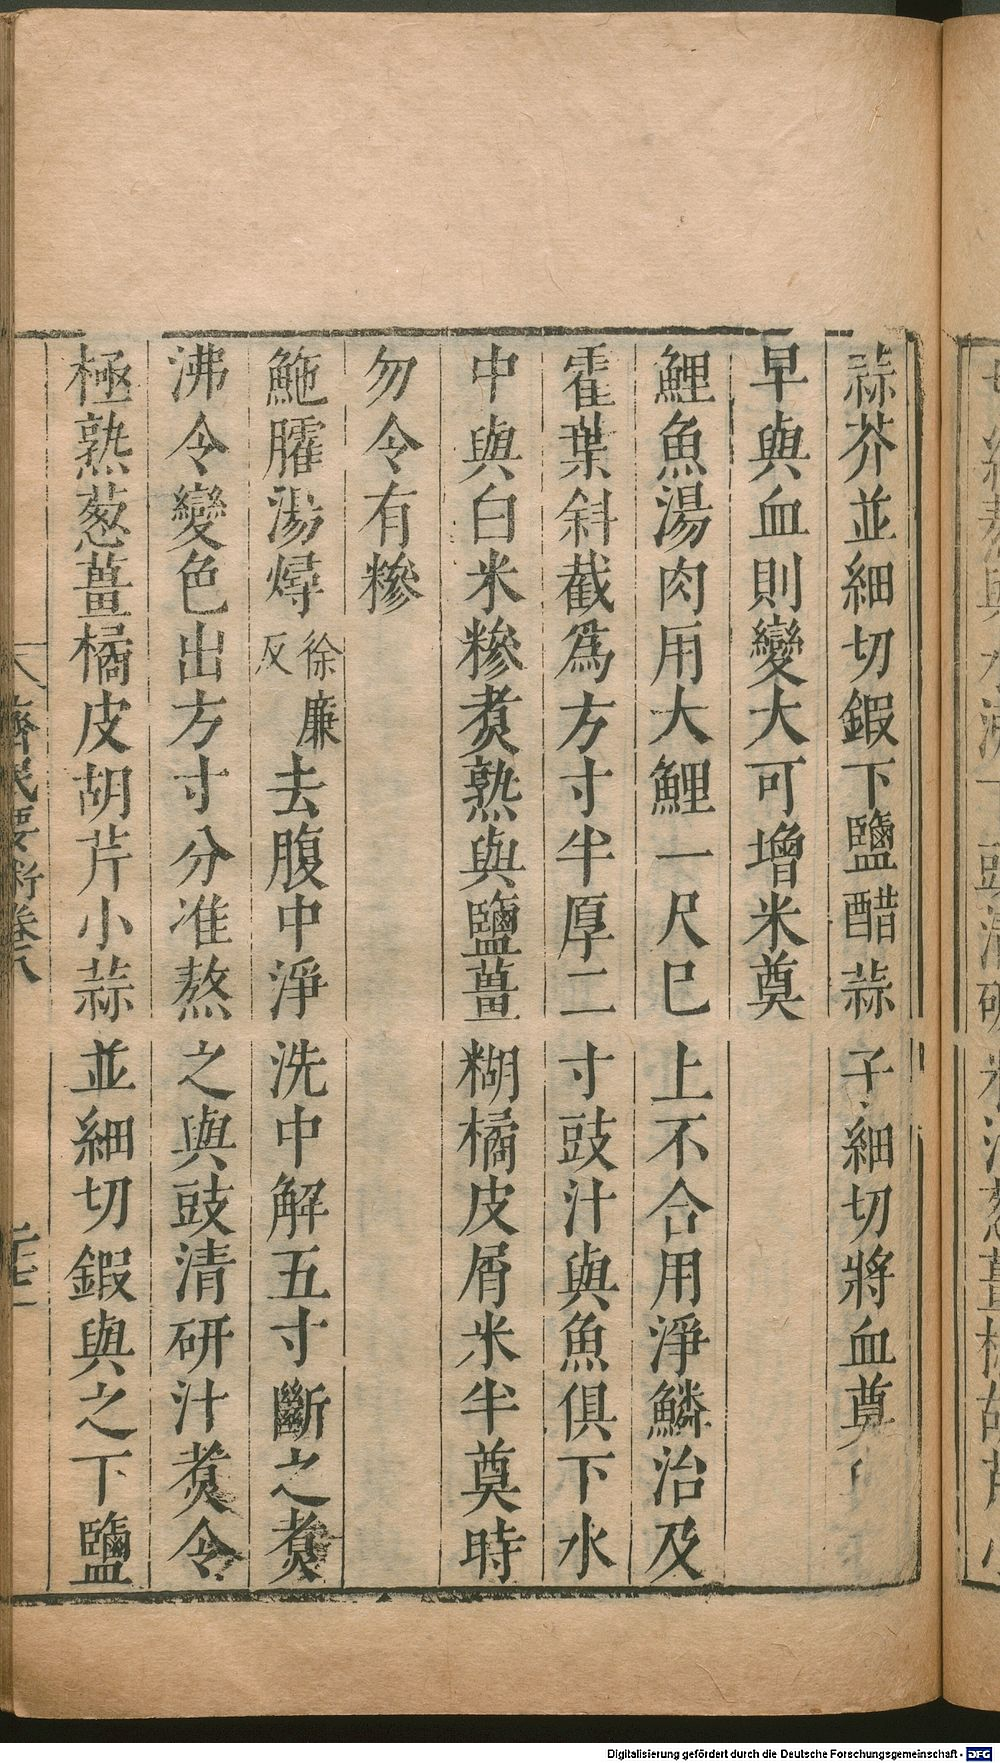 蒜芥並細切鍜下鹽醋蒜子細切將血奠
早與血則變大可增米奠
鯉魚湯肉用大鯉一尺巳上不合用淨鱗治及
霍葉斜截爲方寸半厚二寸豉汁與魚俱下水
中與白米糝煑熟與鹽薑糊橘皮屑米半奠時
勿令有糝
鮑臛湯燖徐廉反去腹中淨洗中解五寸斷之煑
沸令變色出方寸分准熬之與豉清研汁煑令
極熟葱薑橘皮胡芹小蒜並細切鍜與之下鹽
齊民要術卷八
Digitalisierung gefördert durch die Deutsche Forschungsgemeinschaft - DFG